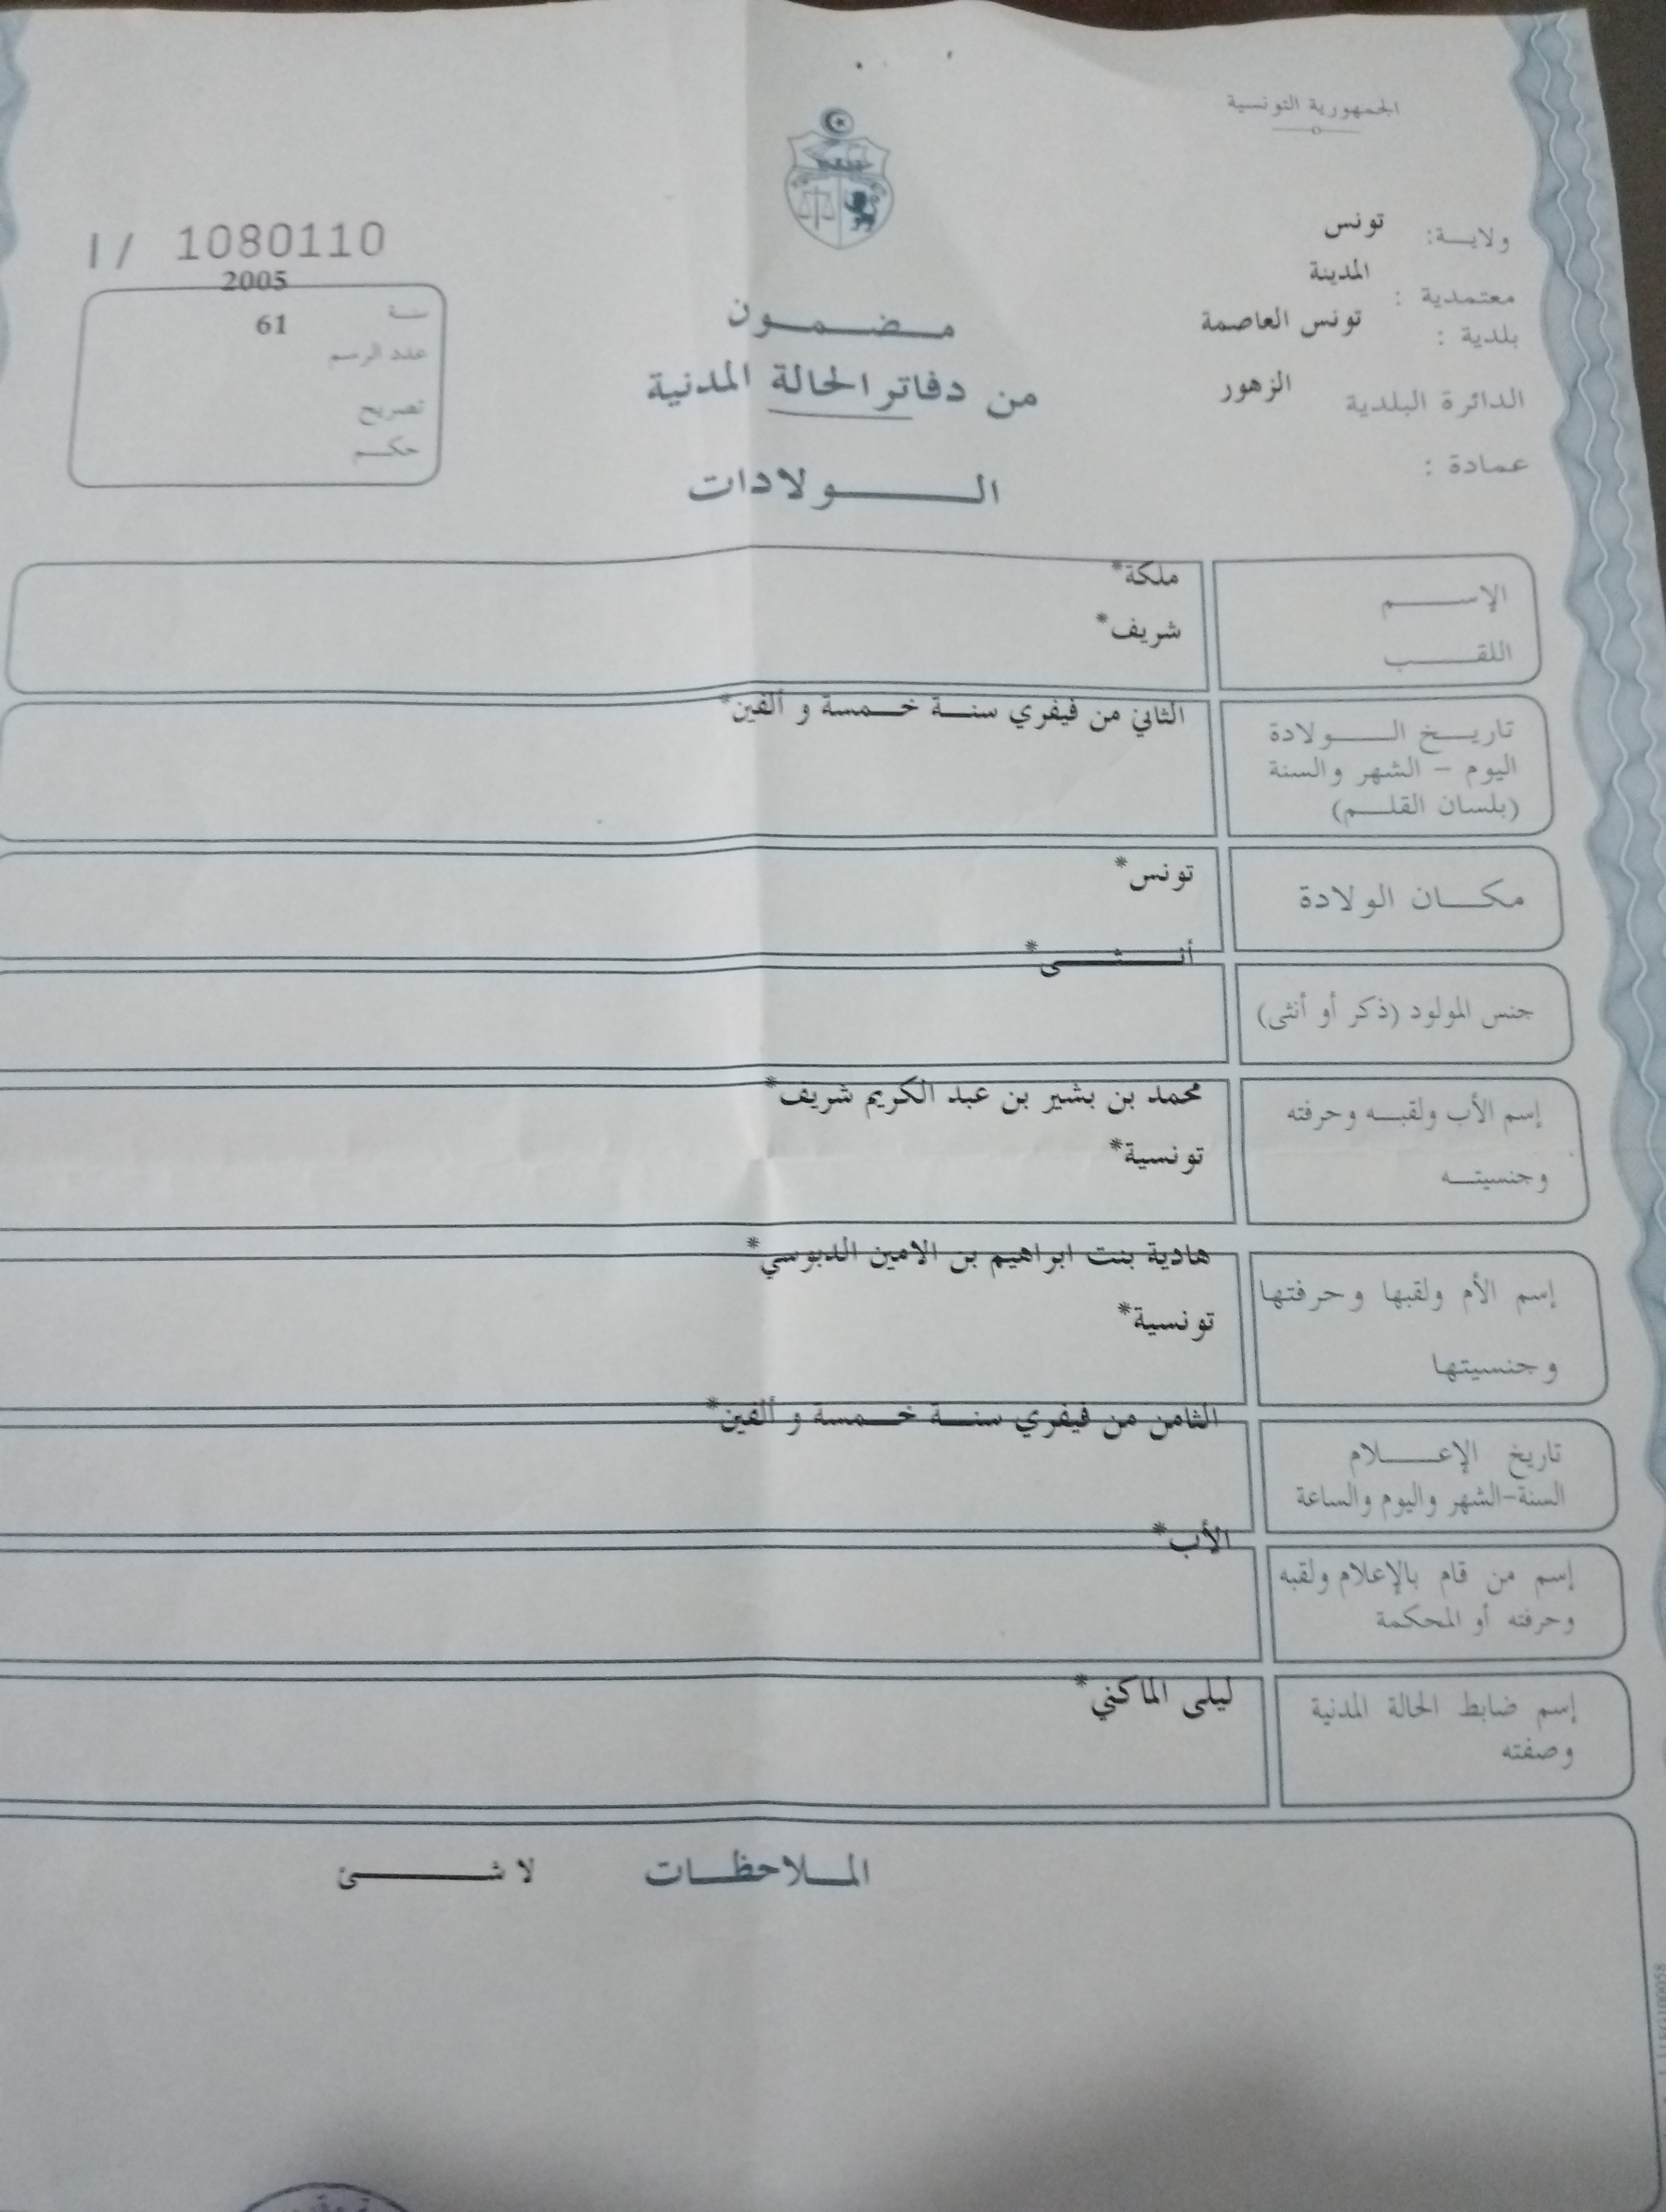 الجمهورية التونسية
ولاية: تونس
معتمدية : المدينة
بلدية : تونس العاصمة
الدائرة البلدية الزهور
عمادة :
I / 1080110
سنة 2005
عدد الرسم 61
تصريح
حكم
مضمون
من دفاتر الحالة المدنية
الولادات
الإسم ملكة*
اللقب شريف*
تاريخ الولادة الثاني من فيفري سنة خمسة و ألفين*
اليوم - الشهر والسنة
(بلسان القلم)
مكان الولادة تونس*
جنس المولود (ذكر أو أنثى) أنثى*
إسم الأب ولقبه وحرفته محمد بن بشير بن عبد الكريم شريف*
وجنسيته تونسية*
إسم الأم ولقبها وحرفتها هادية بنت ابراهيم بن الامين الدبوسي*
وجنسيتها تونسية*
تاريخ الإعلام الثامن من فيفري سنة خمسة و ألفين*
السنة-الشهر واليوم والساعة
إسم من قام بالإعلام ولقبه الأب*
وحرفته أو المحكمة
إسم ضابط الحالة المدنية ليلى الماكني*
وصفته
الملاحظات لا شئ